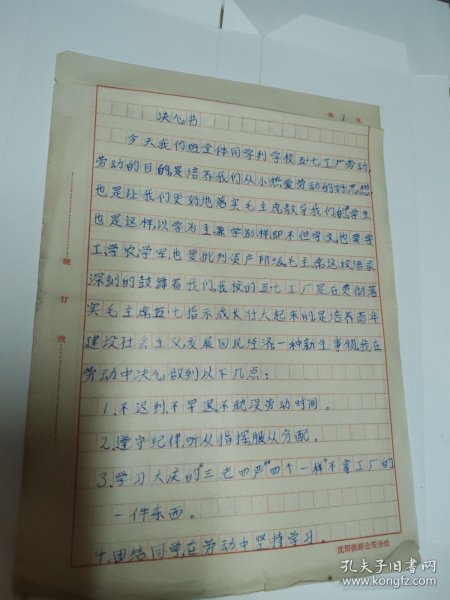 第 1 页
决心书
今天我们班全体同学到学校五·七工厂劳动,
劳动的目的是培养我们从小热爱劳动的好思想,
也是让我们更好地落实毛主席教导我们的"学生
也是这样,以学为主,兼学别样,即不但学文,也要学
工,学农,学军,也要批判资产阶级,毛主席这段语录
深刻的鼓舞着我们,我校的五·七工厂是在贯彻落
实毛主席五·七指示成长壮大起来的,是培养青年
建设社会主义,发展国民经济一种新生事物,我在
劳动中决心做到以下几点:
1.不迟到,不早退,不耽误劳动时间。
2.遵守纪律,听从指挥,服从分配。
3.学习大庆的"三老四严""四个一样"不拿工厂的
一件东西。
4.团结同学,在劳动中坚持学习。
装
订
线
沈阳铁路公安分处
孔夫子旧书网